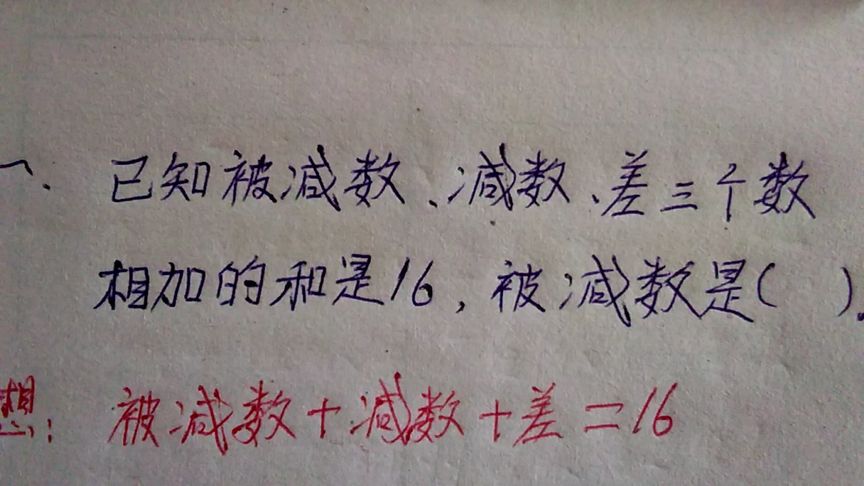 一、已知被减数、减数、差三个数
相加的和是16，被减数是(  )。
想：被减数+减数+差=16